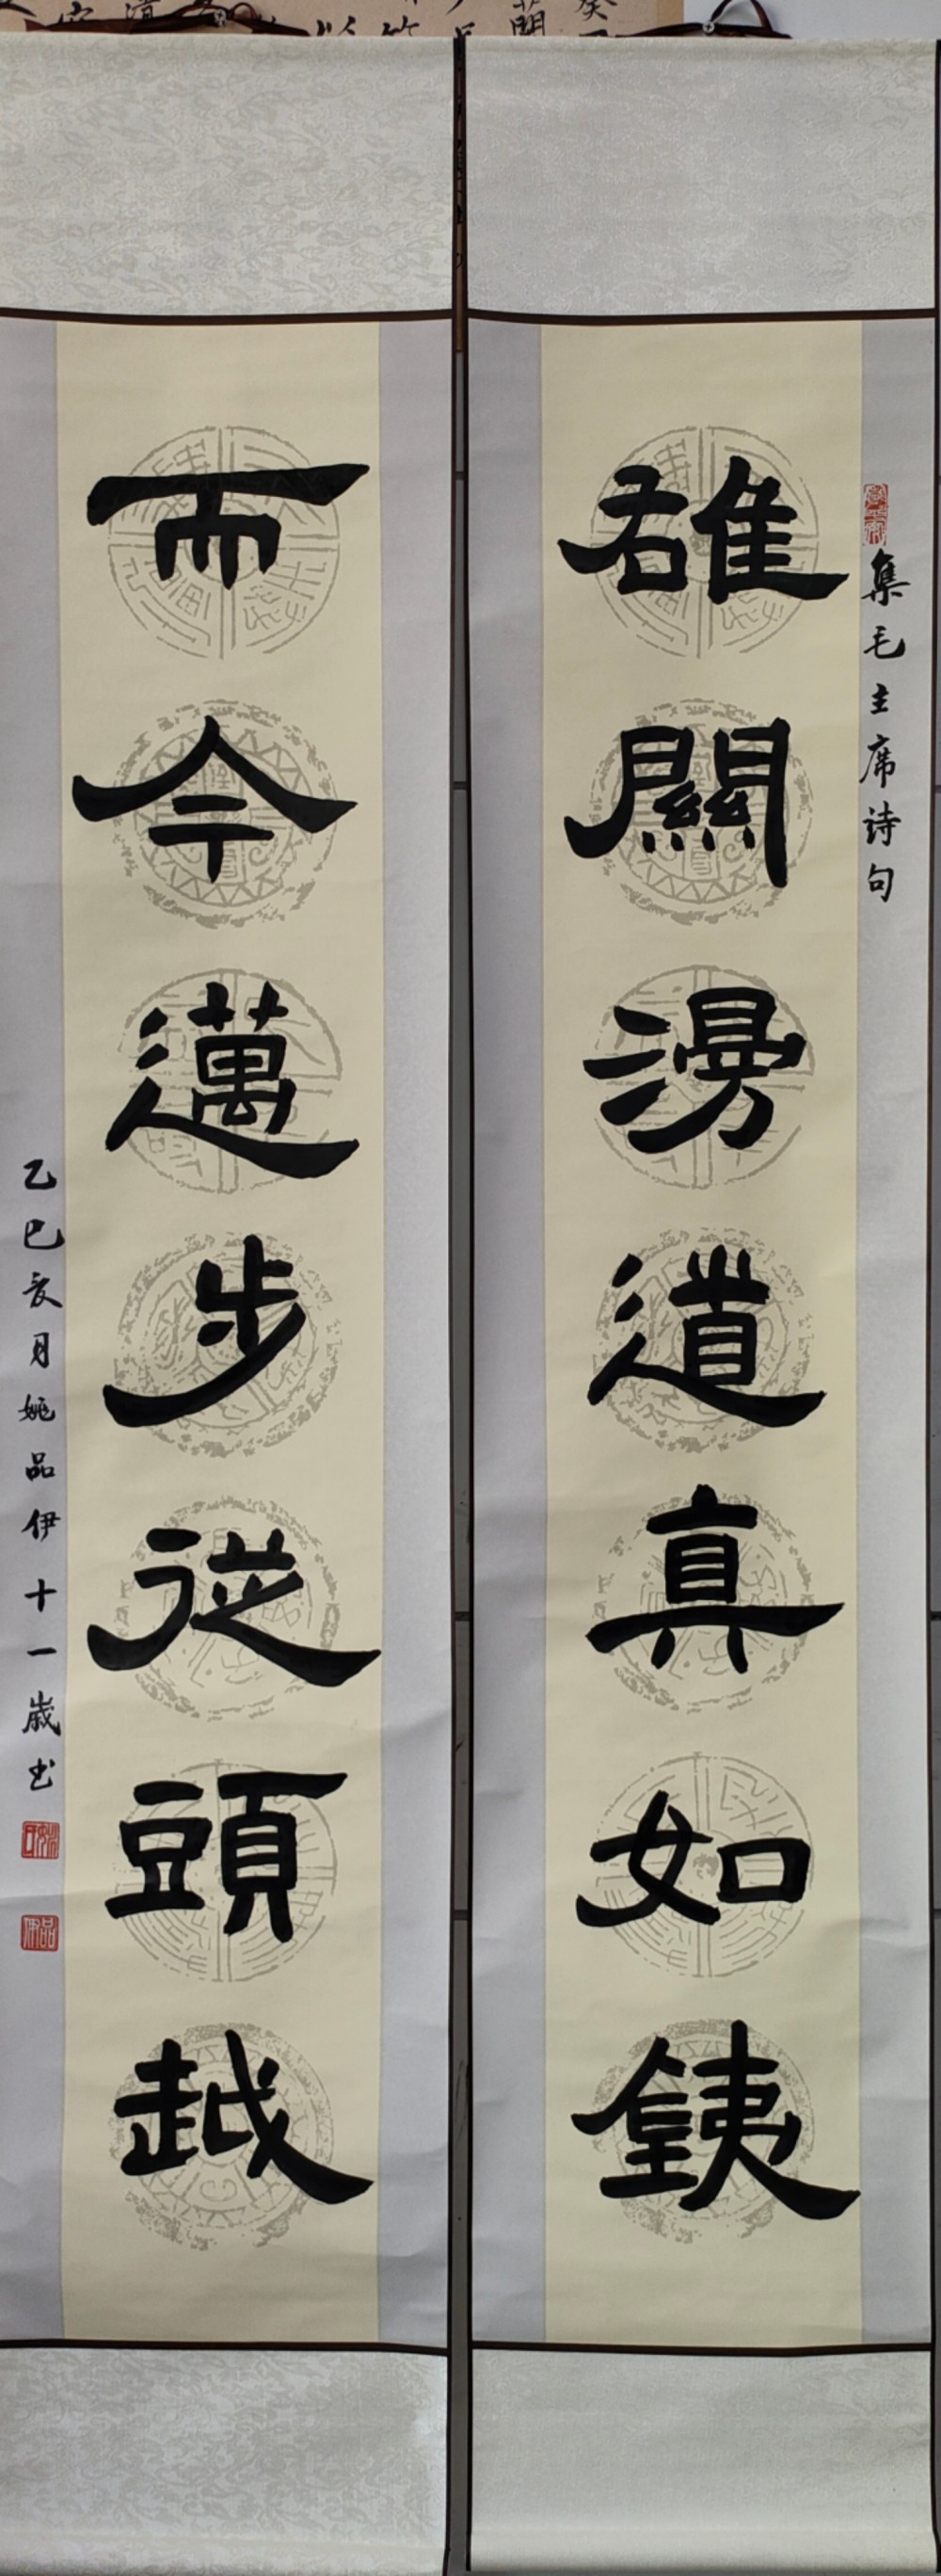 集毛主席诗句
雄關漫道真如鐵
而今邁步從頭越
乙巳亥月姚品伊十一歲书